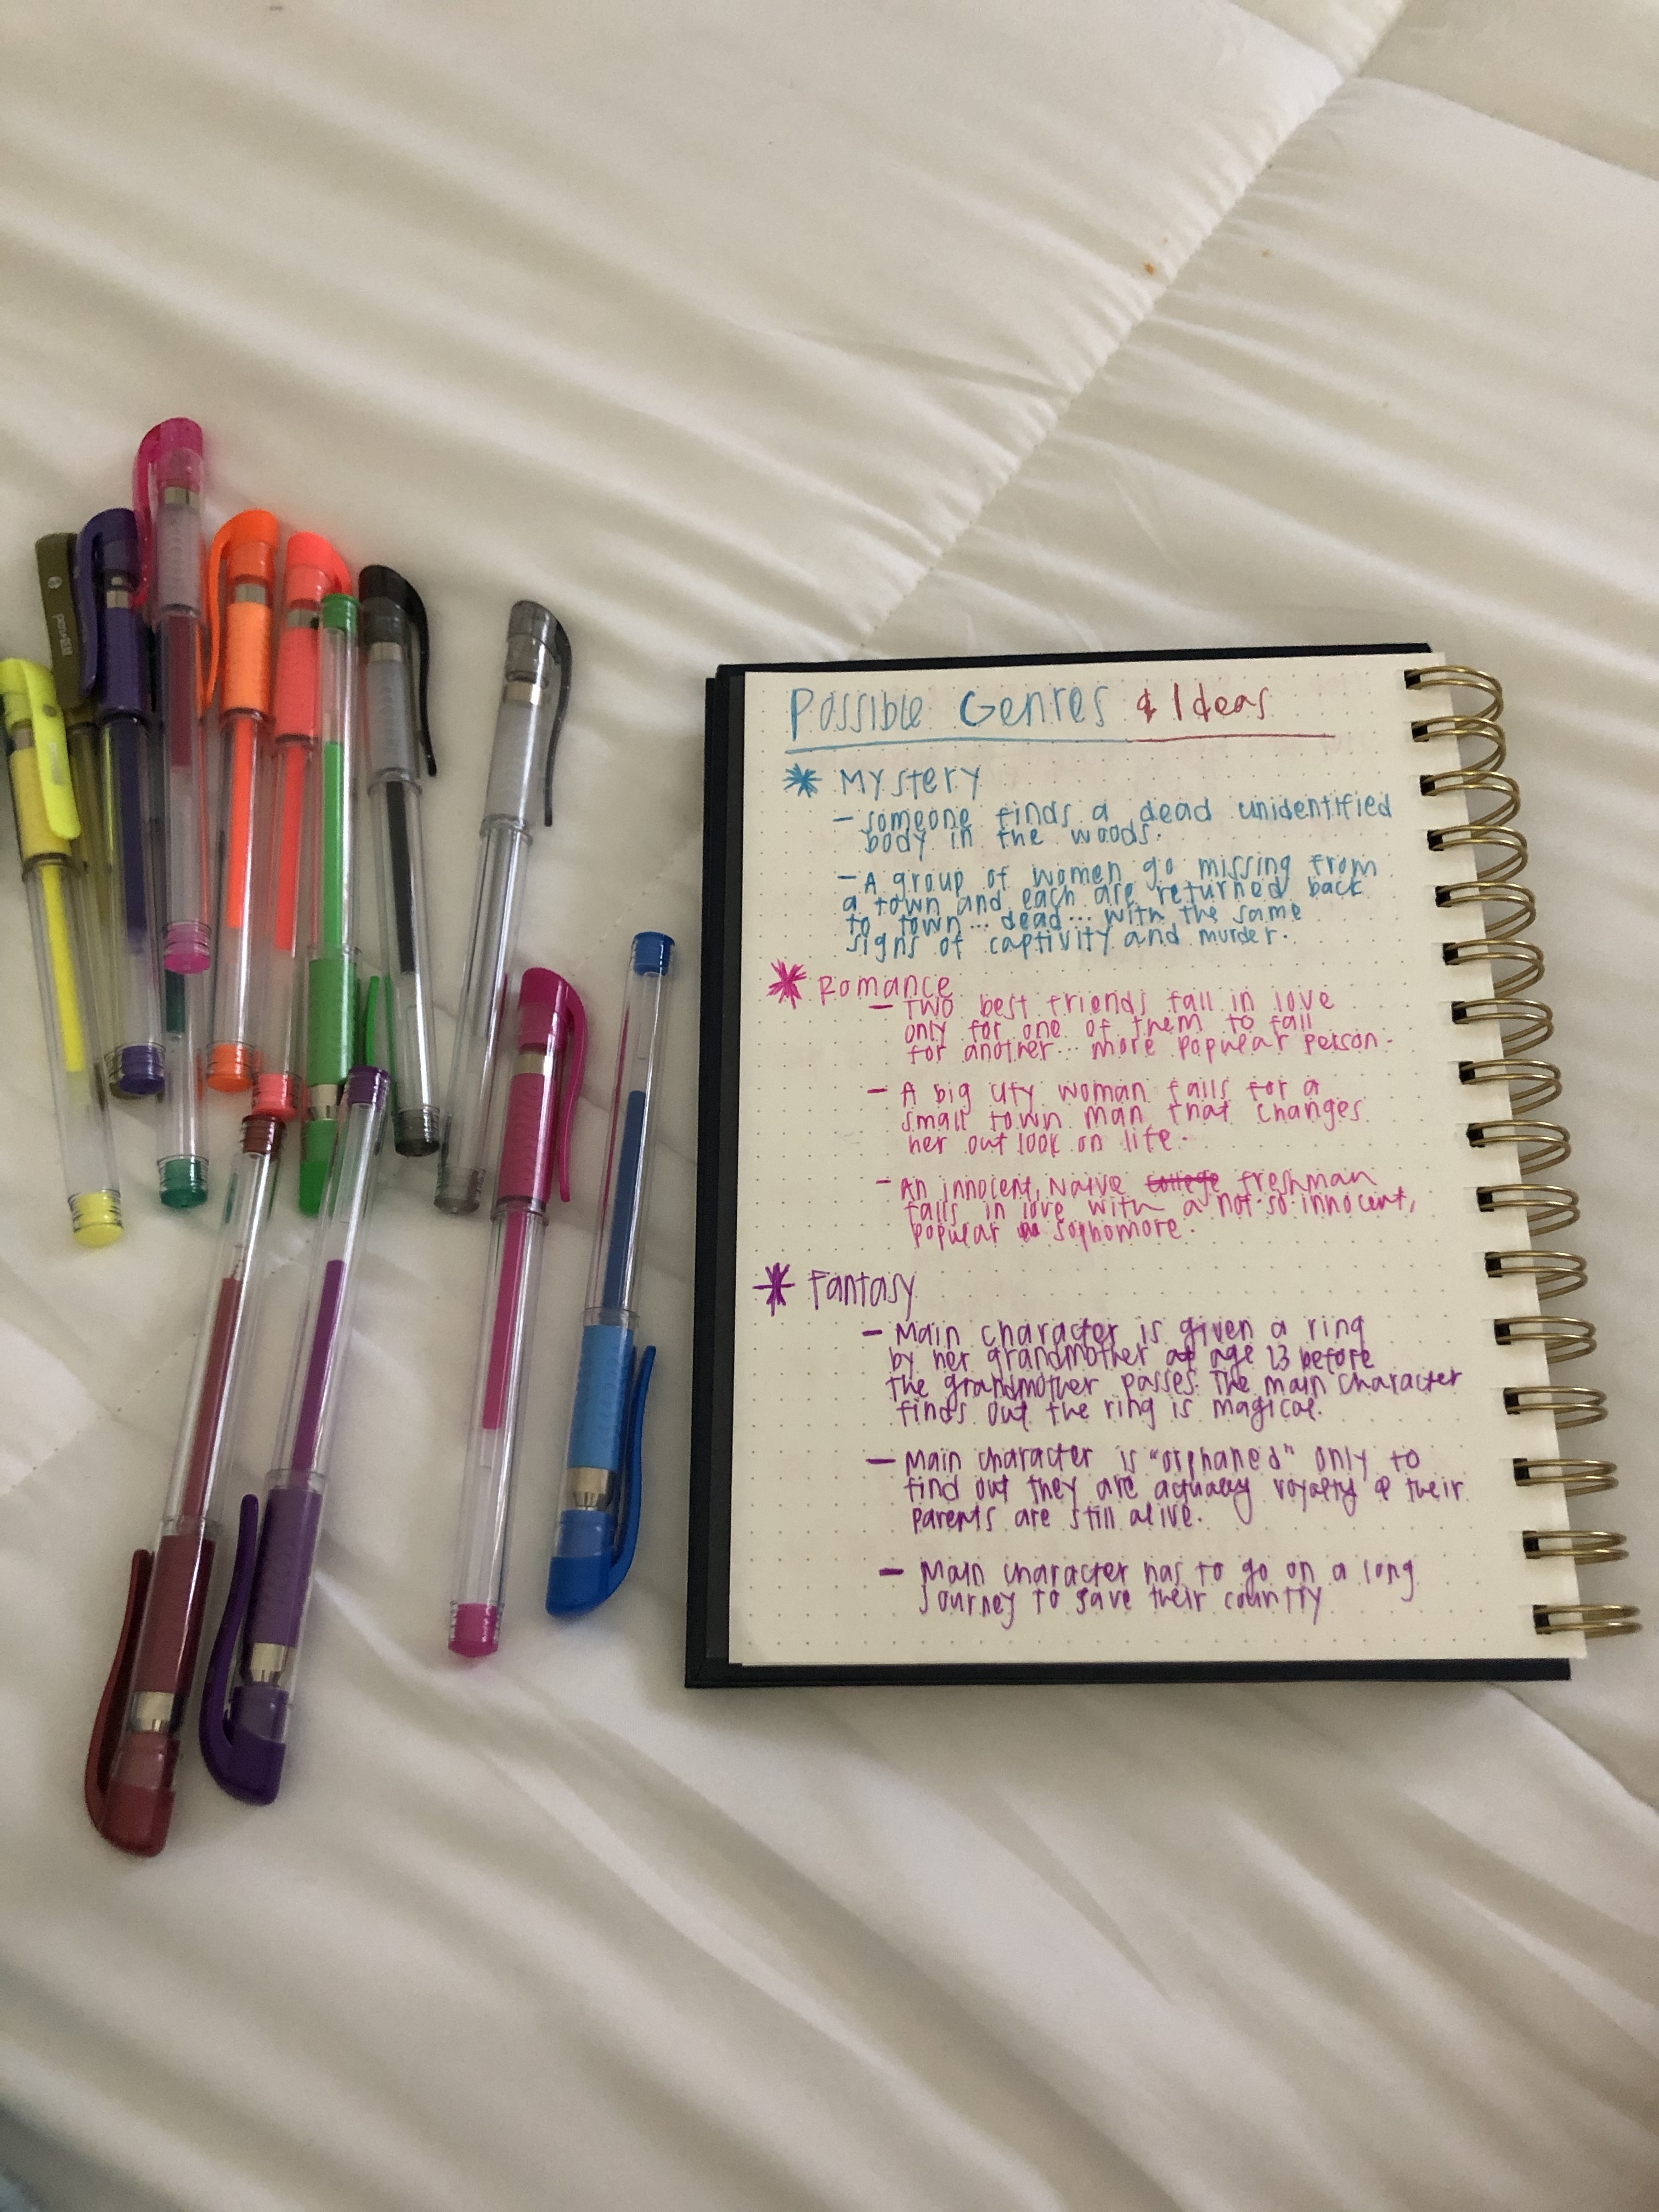 Possible Genres & Ideas
* Mystery
- someone finds a dead unidentified
body in the woods.
- A group of women go missing from
a town and each are returned back
to town... dead... with the same
signs of captivity and murder.
* Romance
- Two best friends fall in love
only for one of them to fall
for another... more popular person.
- A big city woman falls for a
small town man that changes
her out look on life.
- An innocent, Naive college freshman
falls in love with a not-so-innocent,
popular sophomore.
* Fantasy
- Main character is given a ring
by her grandmother at age 13 before
the grandmother passes. The main character
finds out the ring is magical.
- Main character is "orphaned" only to
find out they are actually royalty & their
parents are still alive.
- Main character has to go on a long
journey to save their country